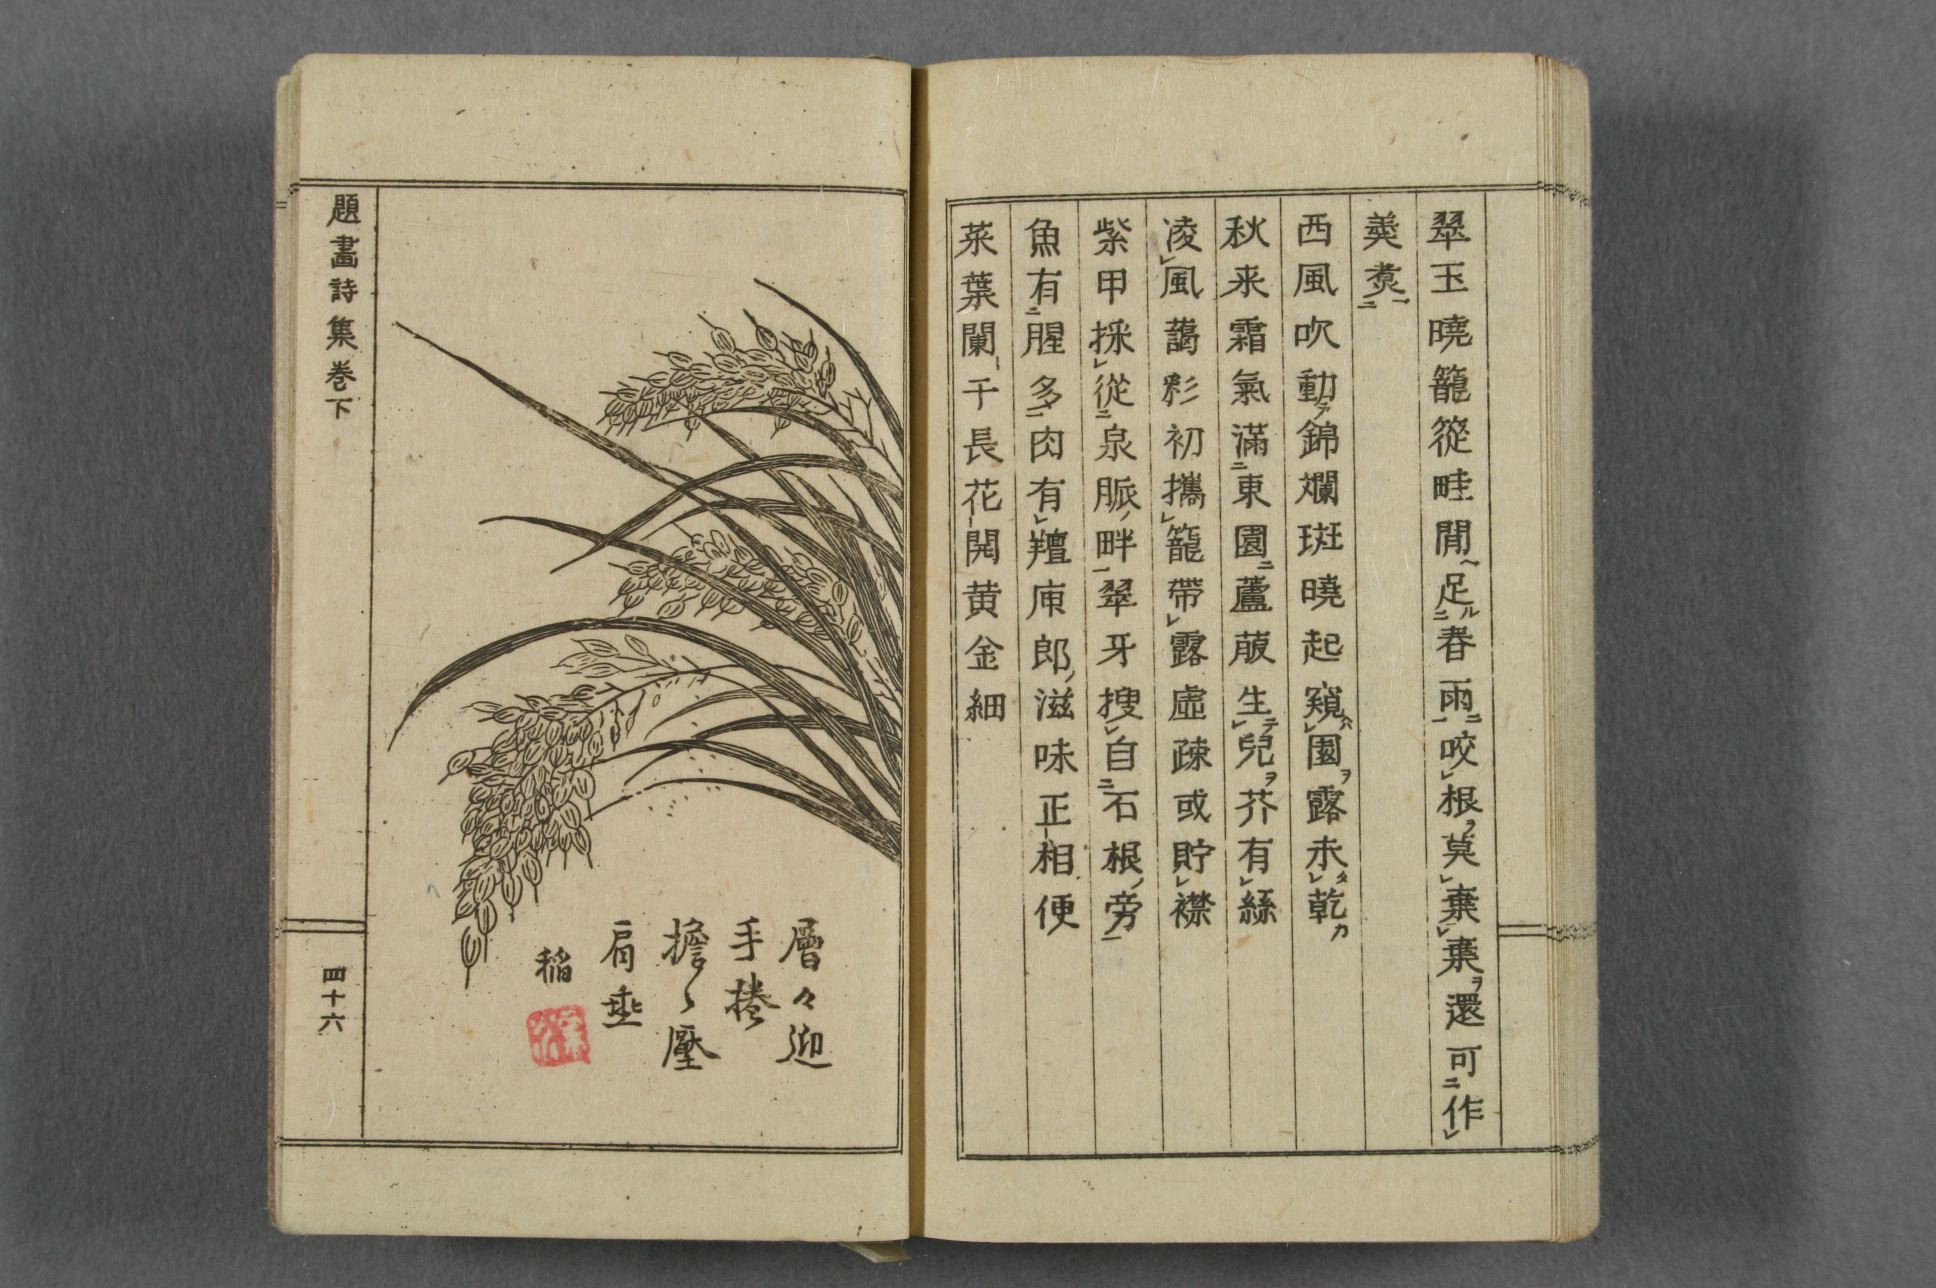 翠玉曉籠従畦閒足春雨咬根莫棄棄還可作
羹煑
西風吹動錦斕斑曉起窺園露未乾
秋来霜氣滿東園蘆菔生兒芥有絲
凌風藹彩初攜籠帶露虛疎或貯襟
紫甲採從泉脈畔翠牙搜自石根旁
魚有腥多肉有羶庾郎滋味正相便
菜葉闌干長花開黄金細
層々迎
手捲
擔々壓
肩垂
稲
題畫詩集巻下
四十六